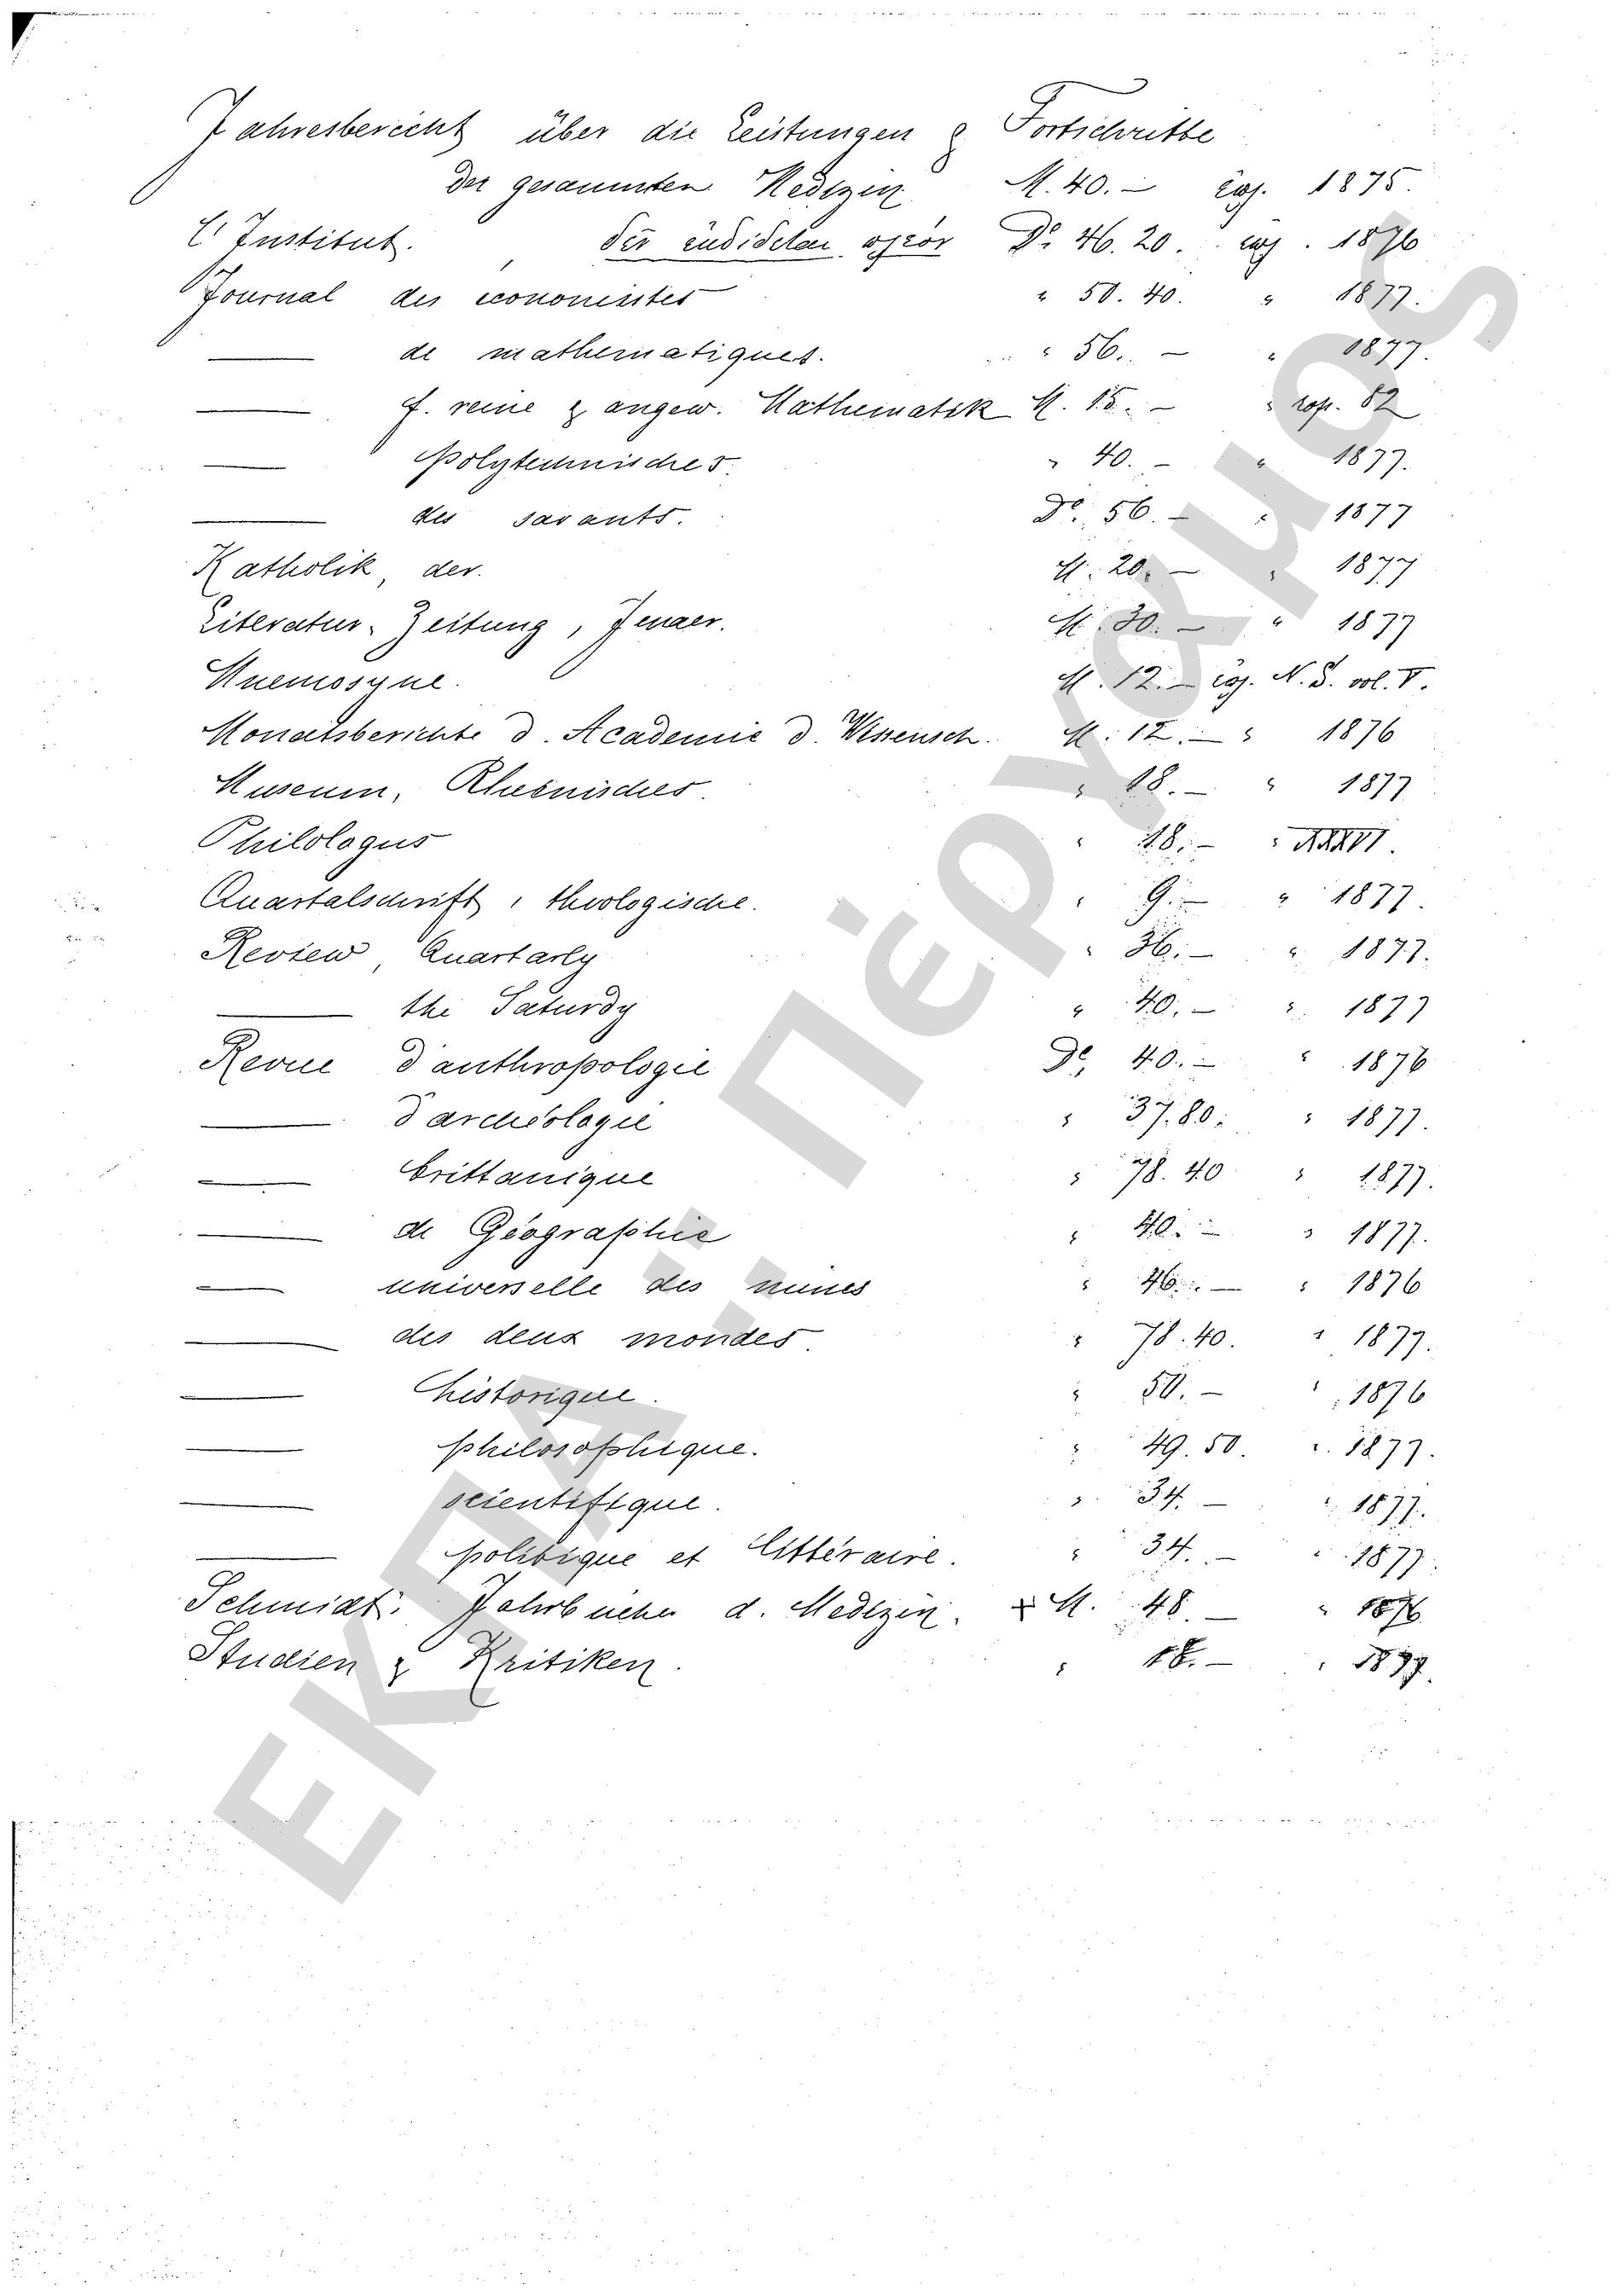 Jahresbericht über die Leistungen & Fortschritte
der gesammten Medizin M. 40.— ἐφ. 1875.
L'Institut. δὲν ἐνδίδεται Δρ. 46.20. ἐφ. 1876
Journal des économistes " 50.40. " 1877.
— de mathematiques. " 56. — " 1877.
— f. reine & angew. Mathematik M. 15. — " τομ. 82
— polytechnisches. " 40. — " 1877.
— des savants. Δρ. 56. — " 1877
Katholik, der. M. 20. — " 1877
Literatur-Zeitung, Jenaer. M. 30. — " 1877
Mnemosyne. M. 12. — ἐφ. N.S. vol. V.
Monatsberichte d. Academie d. Wissensch. M. 12. — " 1876
Museum, Rheinisches. " 18. — " 1877
Philologus " 18. — " XXXVI.
Quartalschrift, theologische. " 9. — " 1877.
Review, Quartarly " 36. — " 1877.
— the Saturdy " 40. — " 1877
Revue d'anthropologie Δρ. 40. — " 1876
— d'archéologie " 37.80. " 1877.
— brittanique " 78.40 " 1877.
— de Géographie " 40. — " 1877.
— universelle des mines " 46. — " 1876
— des deux mondes. " 78.40. " 1877.
— historique. " 50. — " 1876
— philosophique. " 49.50. " 1877.
— scientifique. " 34. — " 1877.
— politique et littéraire. " 34. — " 1877.
Schmidt. Jahrbücher d. Medizin. + M. 48. — " 1876
Studien & Kritiken. " 18. — " 1877.
ΕΚΠΑ... Πέργαμος